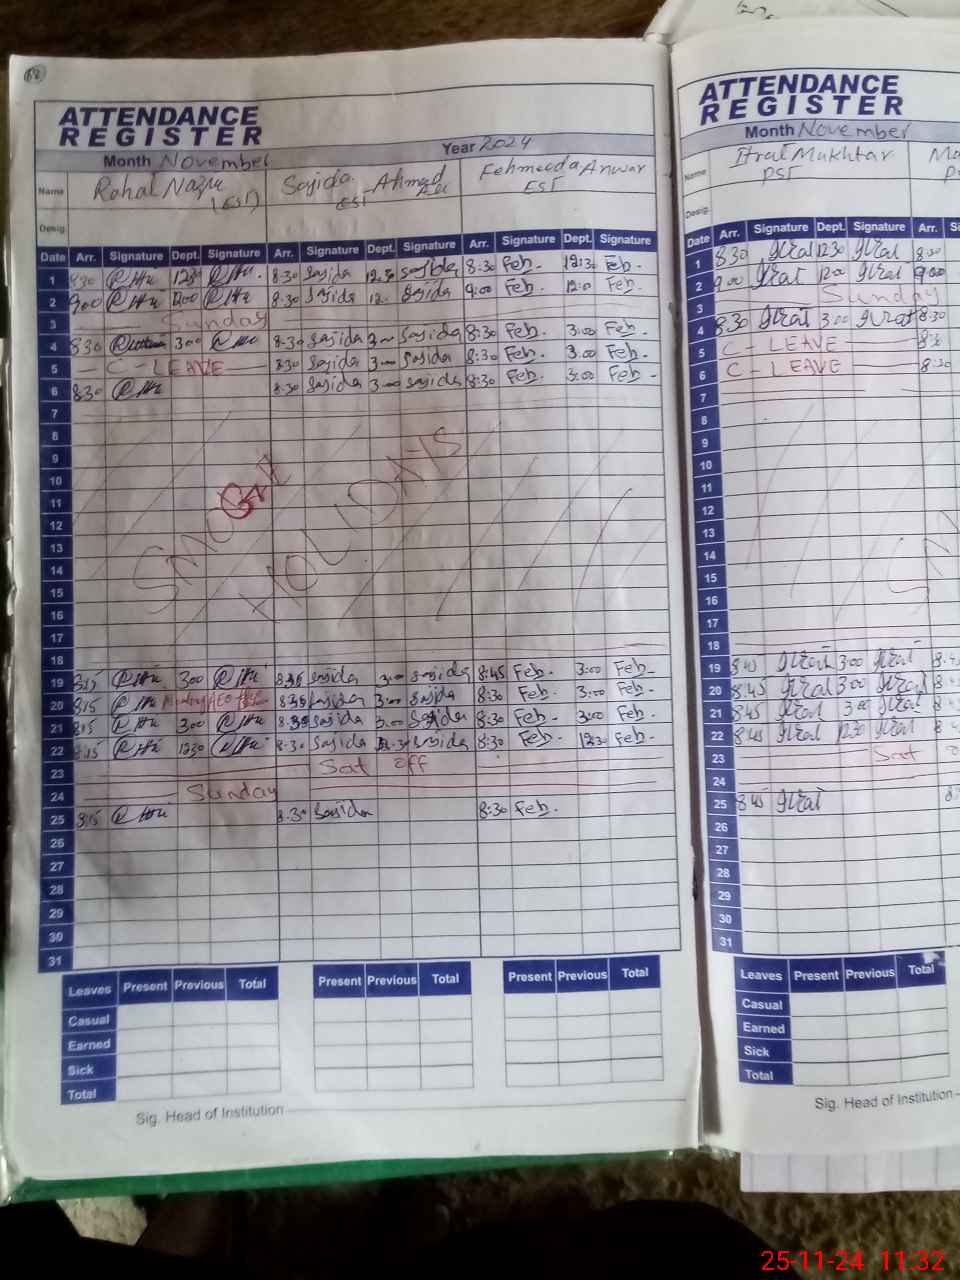 68
ATTENDANCE
REGISTER
Month November Year 2024
Name Rahat (EST) Sajida Ahmad EST Fehmeeda Anwar EST
Desig.
Date Arr. Signature Dept. Signature Arr. Signature Dept. Signature Arr. Signature Dept. Signature
1 8:30 1230 8:30 Sajida 12.30 Sajida 8:30 Feh. 12:30 Feh.
2 900 1200 8:30 Sajida 12. Sajida 9:00 Feh. 12:0 Feh.
3 Sunday
4 830 300 8:30 Sajida 3 Sajida 8:30 Feh. 3:00 Feh.
5 C - LEAVE 8:30 Sajida 3 Sajida 8:30 Feh. 3:00 Feh.
6 830 8:30 Sajida 3 Sajida 8:30 Feh. 3:00 Feh.
7
8
9
10
11
12
13
14
15
16
17
18
SMOG HOLIDAYS
19 815 300 Sajida 3:00 Sajida 8:45 Feh. 3:00 Feh.
20 815 Sajida 3:00 Sajida 8:30 Feh. 3:00 Feh.
21 815 300 Sajida 3:00 Sajida 8:30 Feh. 3:00 Feh.
22 845 1230 8:30 Sajida 12:30 Sajida 8:30 Feh. 12:30 Feh.
23 Sat off
24 Sunday
25 815 8:30 Sajida 8:30 Feh.
26
27
28
29
30
31
Leaves Present Previous Total Present Previous Total Present Previous Total
Casual
Earned
Sick
Total
Sig. Head of Institution
ATTENDANCE
REGISTER
Month November
Name Itrat Mukhtar PST
Desig.
Date Arr. Signature Dept. Signature Arr.
1 830 Itrat 1230 Itrat 8:30
2 9.00 Itrat 1200 Itrat 9:00
3 Sunday
4 8:30 Itrat 3:00 Itrat 8:30
5 C - LEAVE 8:3
6 C - LEAVE 8:30
7
8
9
10
11
12
13
14
15
16
17
18
19 845 Itrat 300 Itrat
20 8:45 Itrat 300 Itrat
21 845 Itrat 300 Itrat
22 845 Itrat 1230 Itrat
23 Sat
24
25 845 Itrat
26
27
28
29
30
31
Leaves Present Previous Total
Casual
Earned
Sick
Total
Sig. Head of Institution
25-11-24 11:32